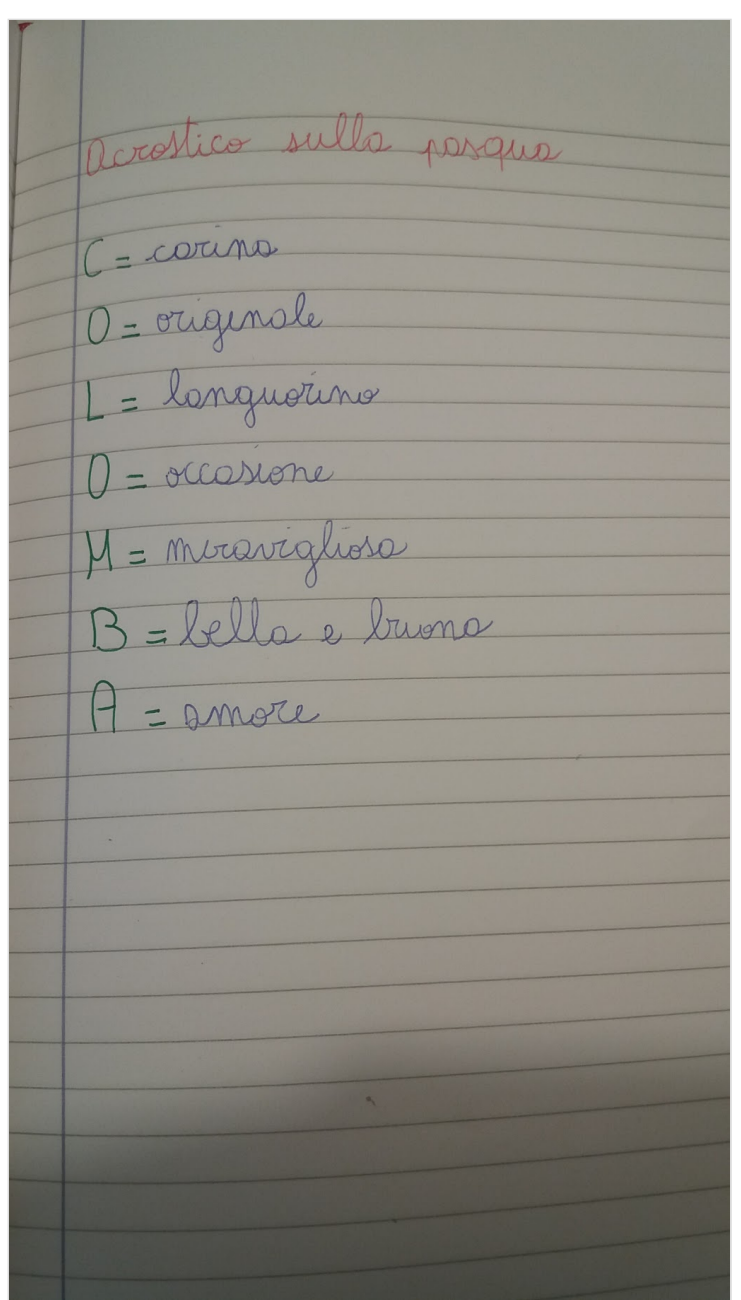 Acrostico sulla pasqua
C = carina
O = originale
L = languorino
O = occasione
M = meravigliosa
B = bella e buona
A = amore